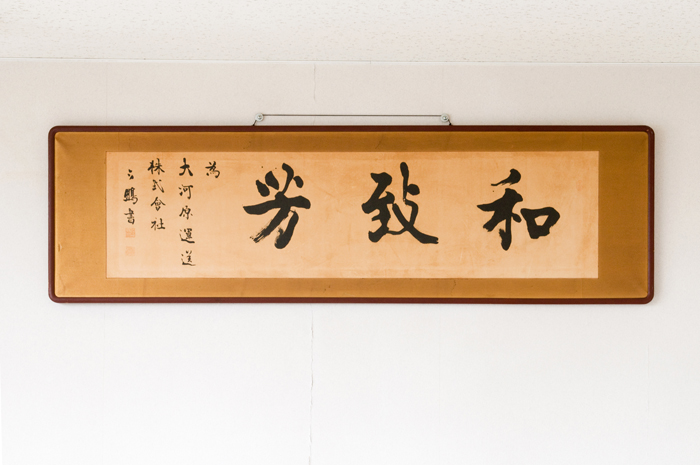 和致芳
為
大河原運送
株式會社
鵬書